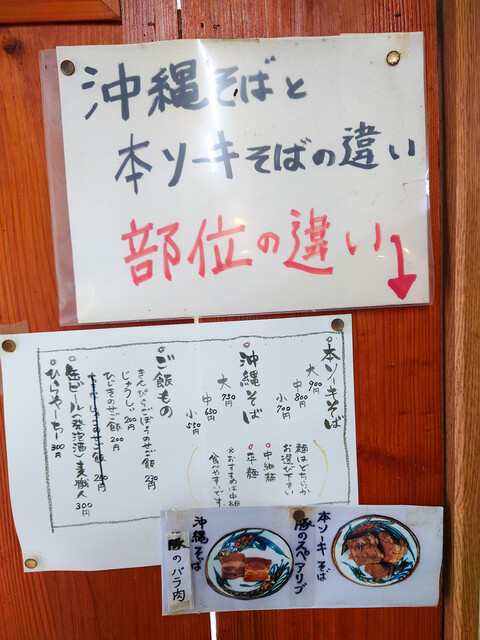 沖縄そばと
本ソーキそばの違い
部位の違い
本ソーキそば
大900
中800
小700円
麺はどちらか
お選び下さい
中細麺
平麺
※おすすめは中細
食べやすいです
沖縄そば
大750
中650
小550
ご飯もの
きんぴらごぼうのせご飯 230円
じゅうしぃ 200円
ひじきのせご飯 200円
缶ビール(発泡酒)麦職人 300円
ひらやーちー 300円
本ソーキそば
豚のスペアリブ
沖縄そば
豚のバラ肉